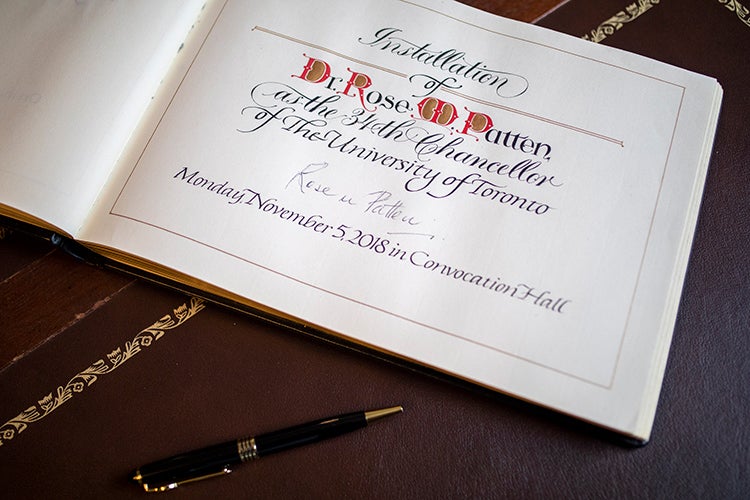 Installation
of
Dr. Rose. M. Patten,
as the 34th Chancellor
of The University of Toronto
Rose M Patten
Monday, November 5, 2018 in Convocation Hall